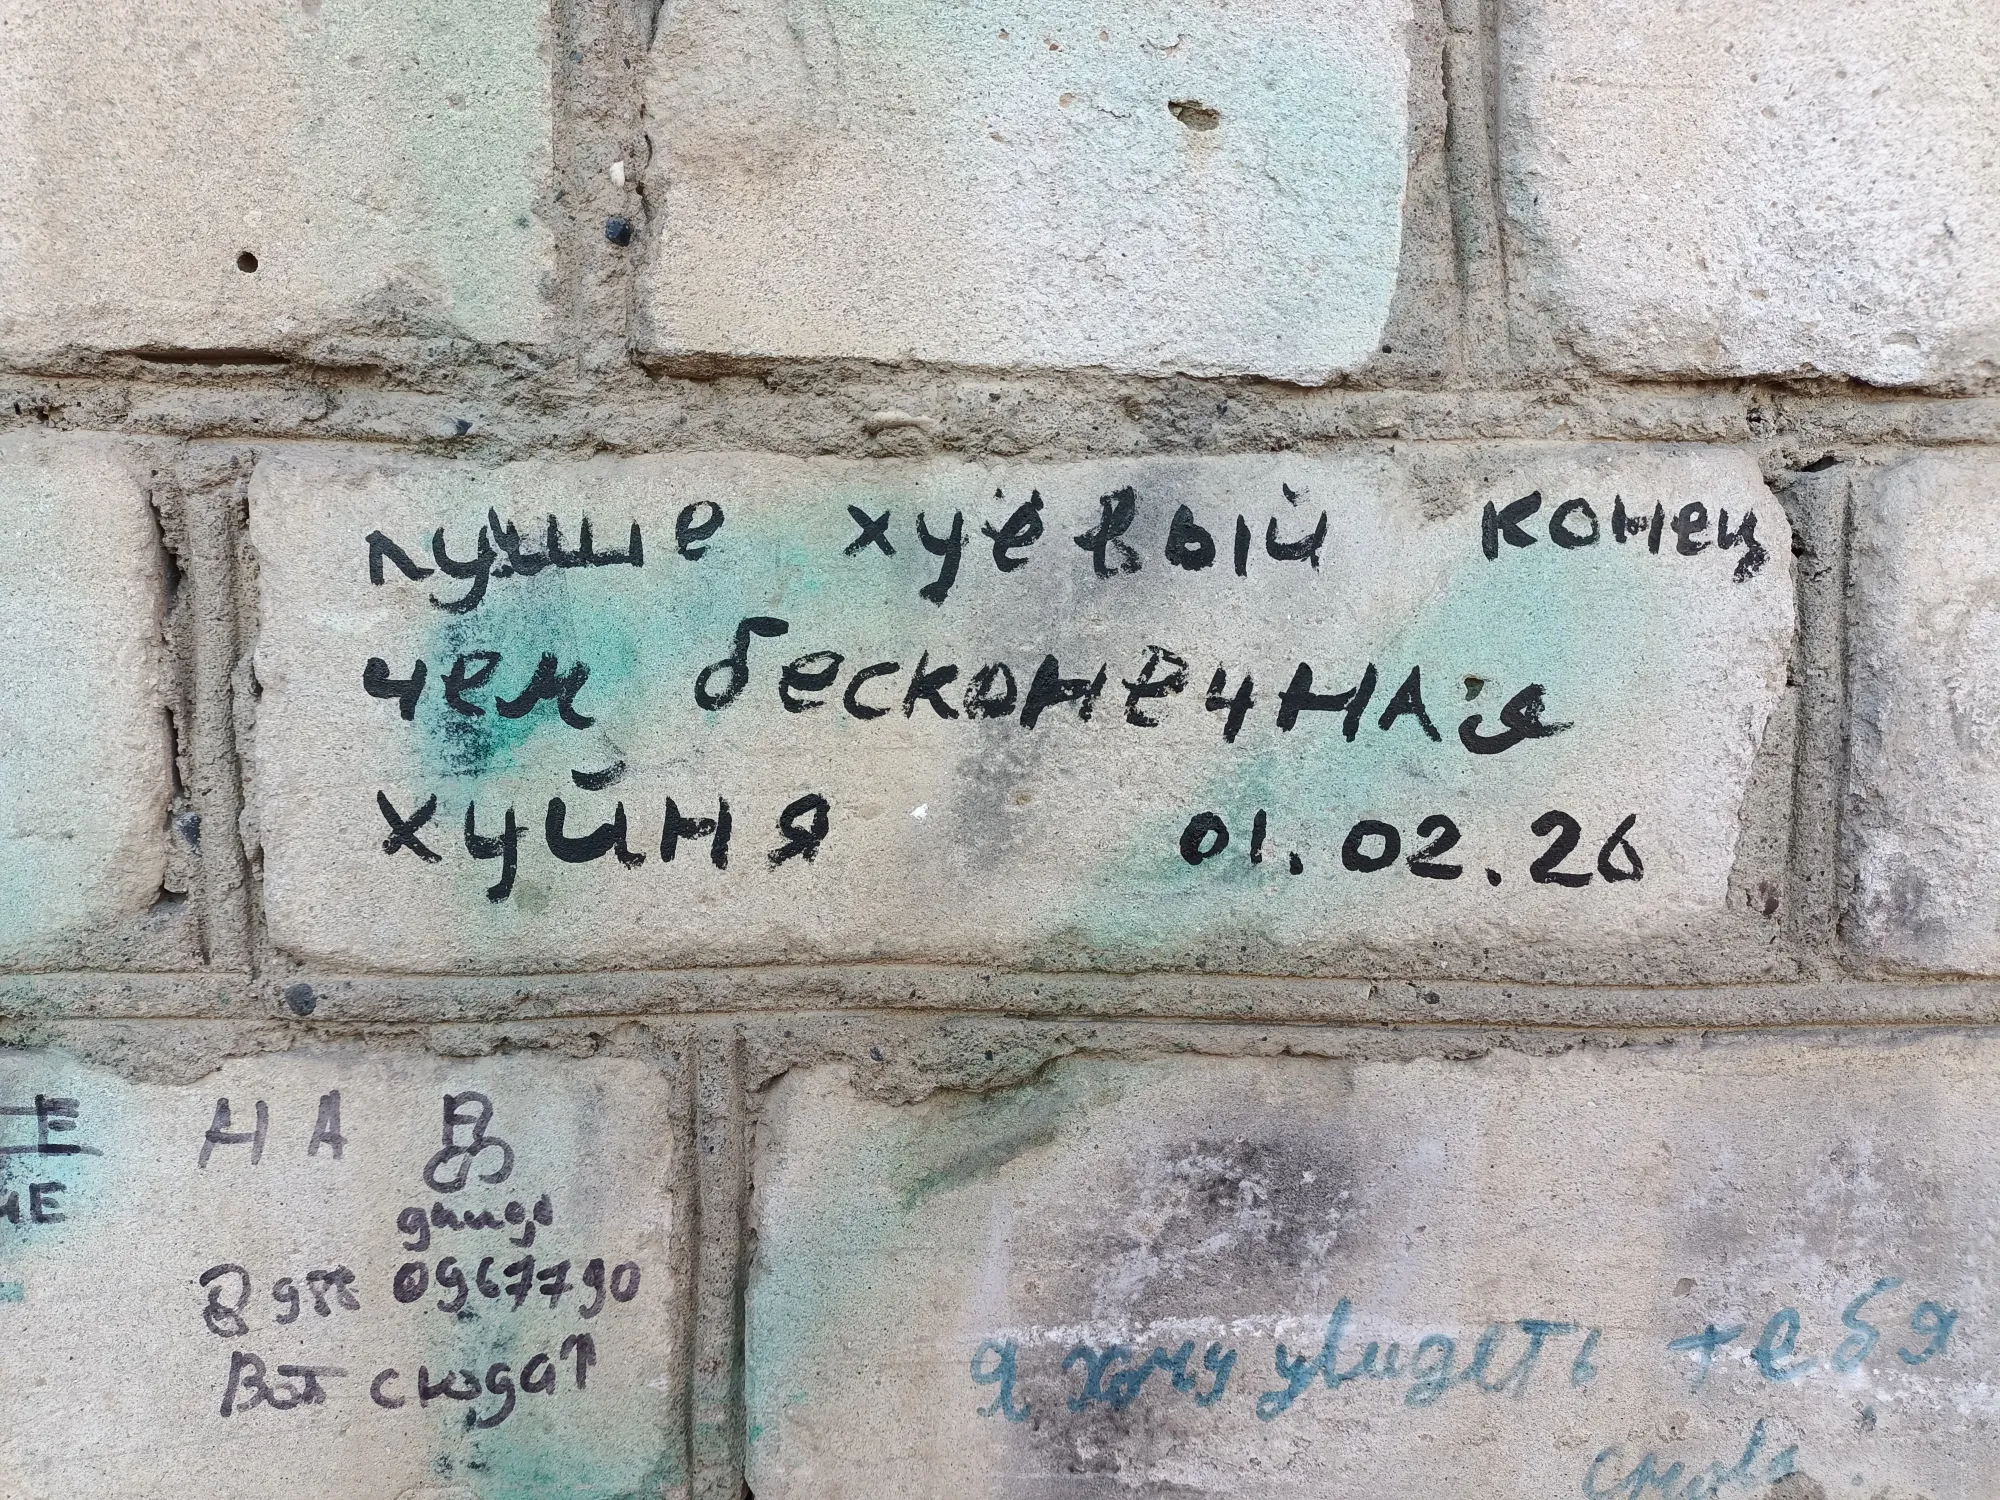 лучше хуёвый конец
чем бесконечная
хуйня 01.02.26
НА
0967790
Вот сюда↑
я хочу увидеть тебя
снова